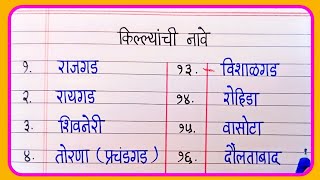 किल्ल्यांची नावे
१. राजगड १३. विशाळगड
२. रायगड १४. रोहिडा
३. शिवनेरी १५. वासोटा
४. तोरणा (प्रचंडगड) १६. दौलताबाद